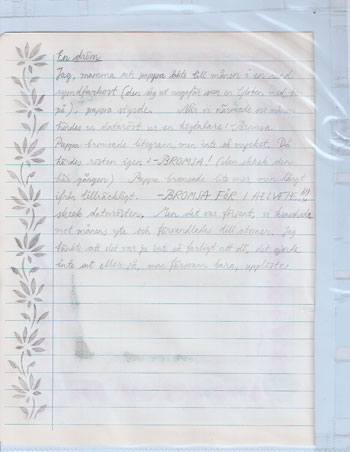 En dröm
Jag, mamma och pappa åkte till månen i en rund
rymdfarkost (den såg ut ungefär som en Globen med
på), pappa styrde. När vi närmade oss månen
hördes en datoröst ur en högtalare: -Bromsa
Pappa bromsade litegrann men inte så mycket. Då
hördes rösten igen: -BROMSA! (den skrek den
här gången) Pappa bromsade lite mer men långt
ifrån tillräckligt. -BROMSA FÖR I HELVETE...!!!
skrek datorösten. Men det var försent, vi kraschade
mot månens yta och förvandlades till atomer. Jag
tänkte att det var ju inte så farligt att dö, det gjorde
inte ont eller så, man försvann bara, upplöstes